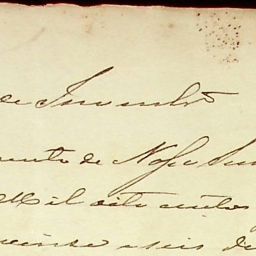 de Inventro
mento de Nosso Sen
Mil oito centos
vinte e seis do